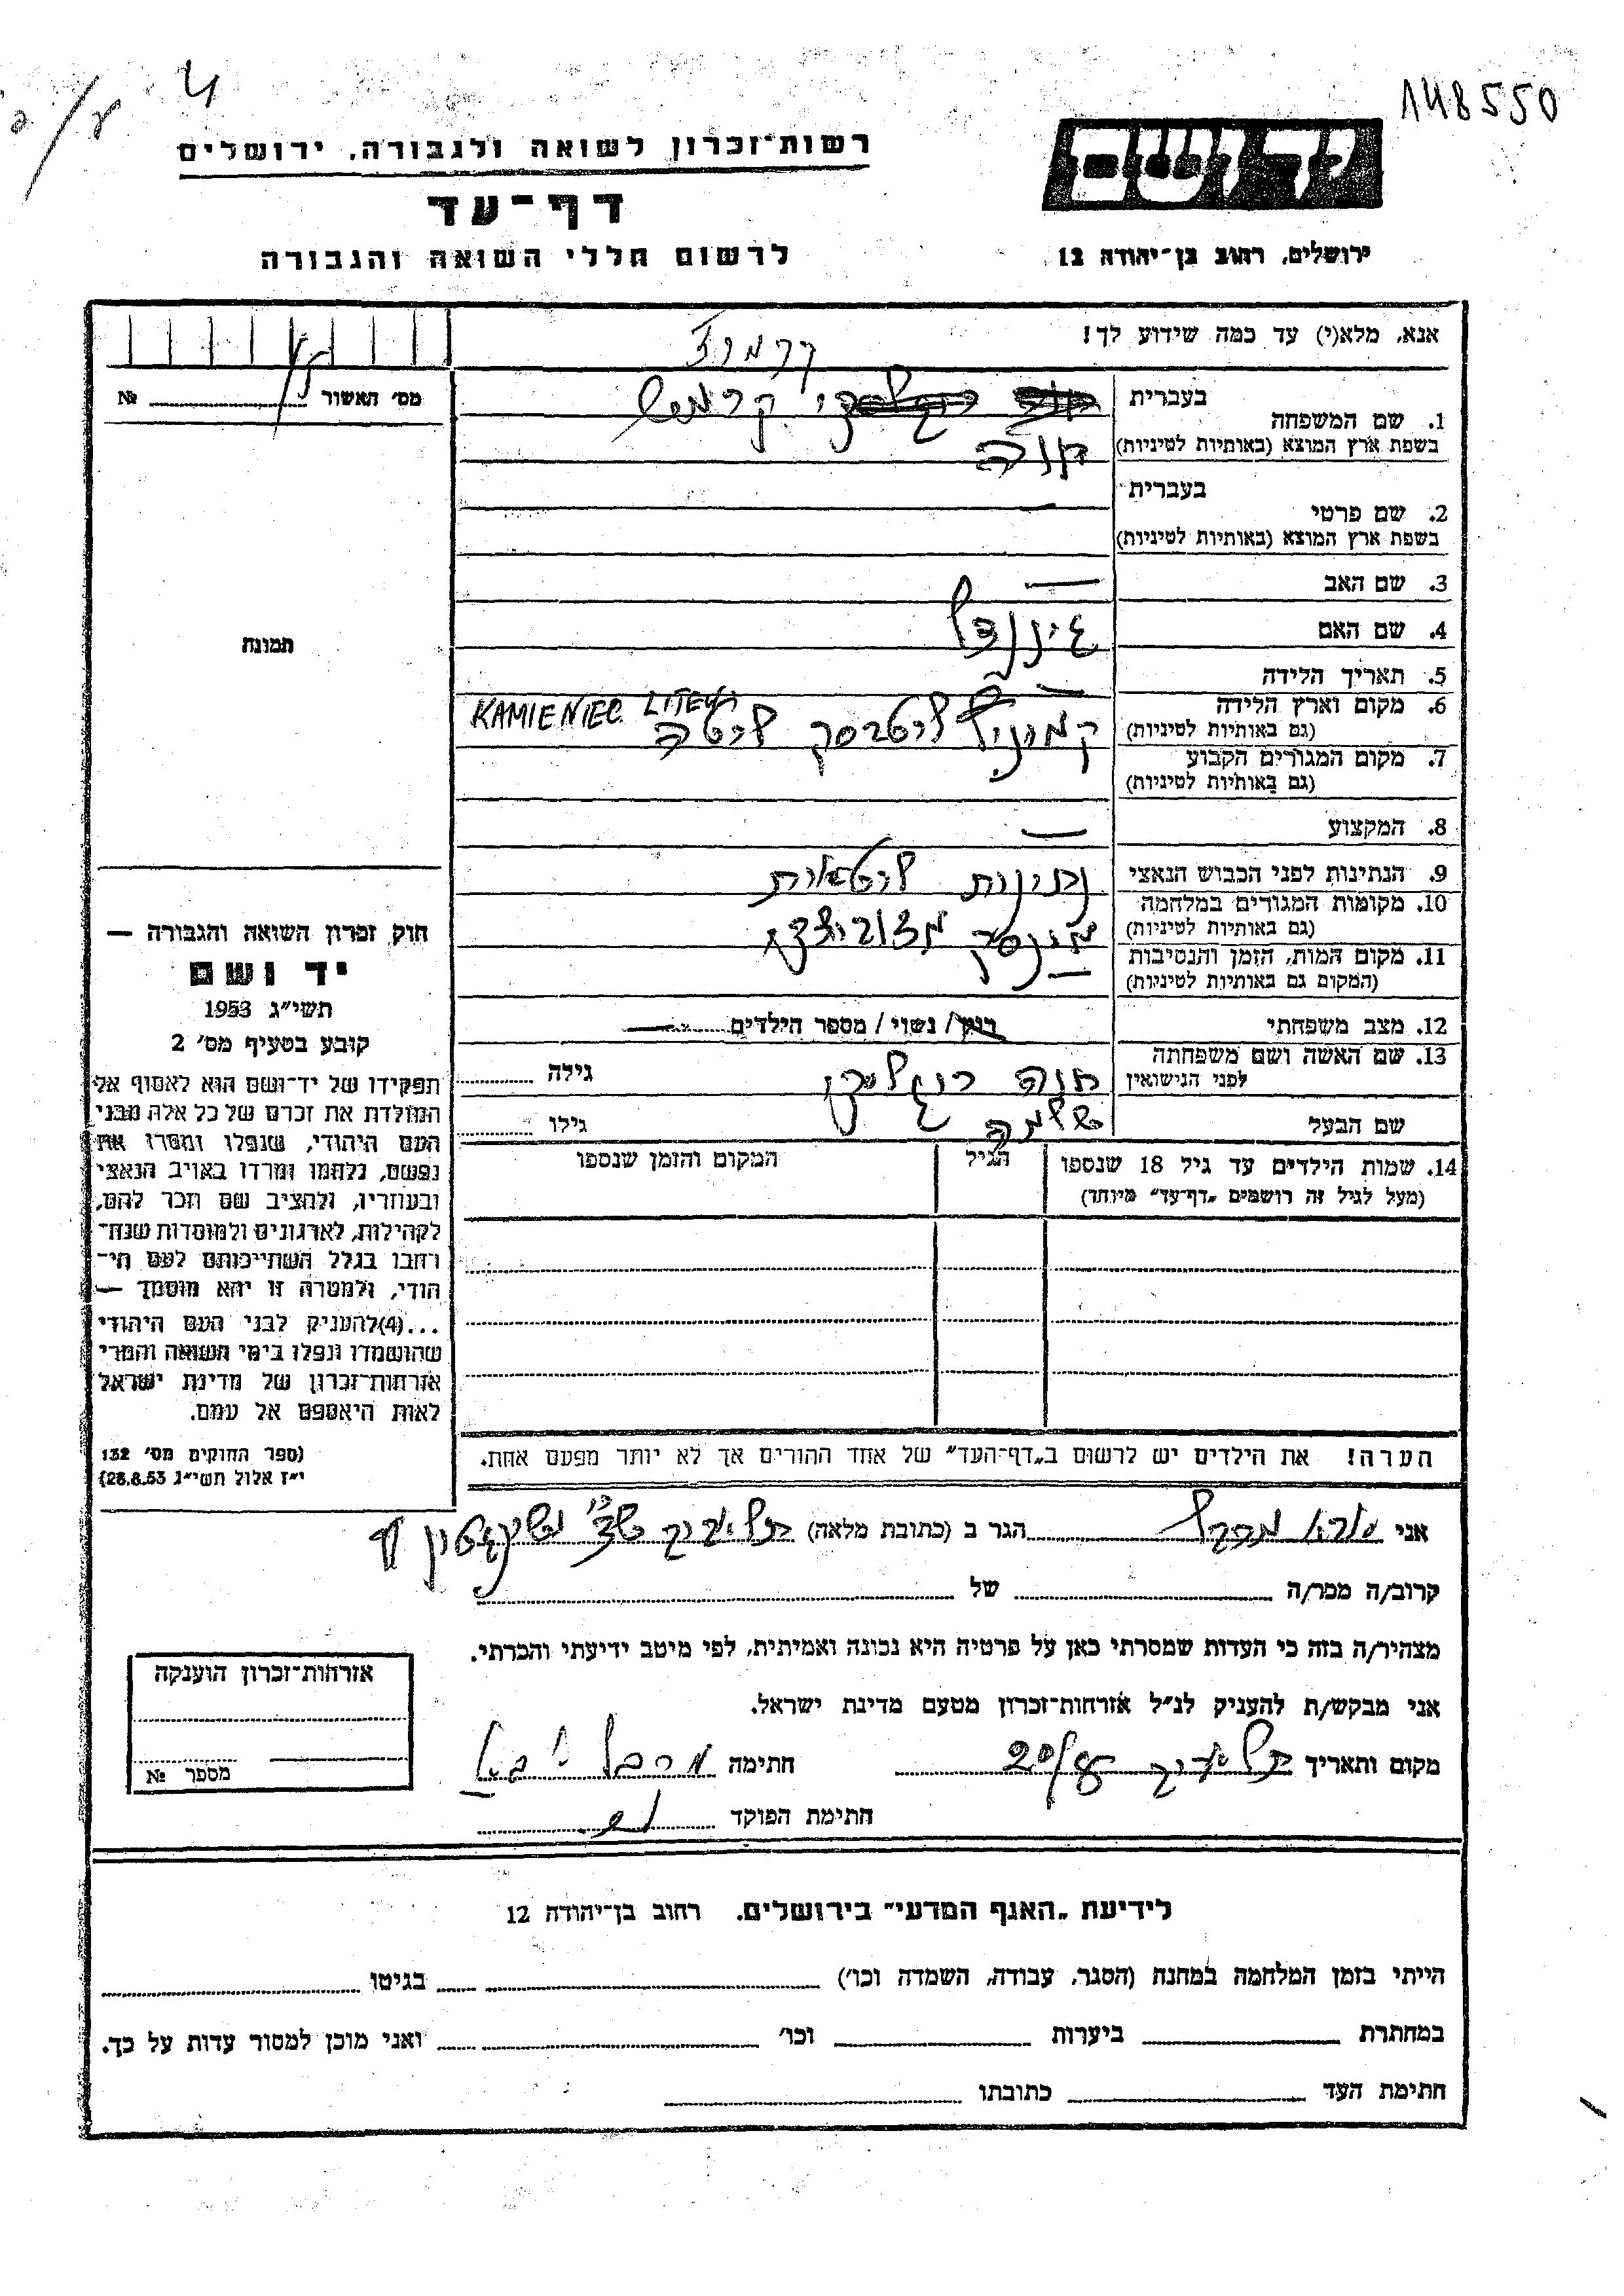 148550
רשות־זכרון לשואה ולגבורה, ירושלים
דף־עד
לרשום חללי השואה והגבורה
יד ושם
ירושלים, רחוב בן־יהודה 12
אנא, מלא(י) עד כמה שידוע לך!
מס׳ האשור № 
1. שם המשפחה
בעברית
בשפת ארץ המוצא (באותיות לטיניות)
חוה
2. שם פרטי
בעברית
בשפת ארץ המוצא (באותיות לטיניות)
3. שם האב —
4. שם האם
5. תאריך הלידה —
6. מקום וארץ הלידה
(גם באותיות לטיניות)
ליטבסק ליטה KAMIENIEC
7. מקום המגורים הקבוע
(גם באותיות לטיניות)
8. המקצוע —
9. הנתינות לפני הכבוש הנאצי נתינות ליטאית
10. מקומות המגורים במלחמה
(גם באותיות לטיניות)
מינסק
11. מקום המות, הזמן והנסיבות —
(המקום גם באותיות לטיניות)
12. מצב משפחתי רוק / נשוי / מספר הילדים —
13. שם האשה ושם משפחתה
לפני הנישואין
חוה גילה
שם הבעל שלמה גילו
14. שמות הילדים עד גיל 18 שנספו
(מעל לגיל זה רושמים „דף־עד״ מיוחד)
הגיל
המקום והזמן שנספו
הערה! את הילדים יש לרשום ב„דף־העד״ של אחד ההורים אך לא יותר מפעם אחת.
תמונה
חוק זכרון השואה והגבורה —
יד ושם
תשי״ג 1953
קובע בסעיף מס׳ 2
תפקידו של יד־ושם הוא לאסוף אל
המולדת את זכרם של כל אלה מבני
העם היהודי, שנפלו ומסרו את
נפשם, נלחמו ומרדו באויב הנאצי
ובעוזריו, ולהציב שם וזכר להם,
לקהילות, לארגונים ולמוסדות שנח־
רחבו בגלל השתייכותם לעם הי־
הודי, ולמטרה זו יהא מוסמך —
...(4)להעניק לבני העם היהודי
שהושמדו ונפלו בימי השואה והמרי
אזרחות־זכרון של מדינת ישראל
לאות היאספם אל עמם.
(ספר החוקים מס׳ 132
י״ז אלול תשי״ג 28.8.53)
אני הגר ב (כתובת מלאה) תל אביב
קרוב/ה מכר/ה של
מצהיר/ה בזה כי העדות שמסרתי כאן על פרטיה היא נכונה ואמיתית, לפי מיטב ידיעתי והכרתי.
אני מבקש/ת להעניק לנ״ל אזרחות־זכרון מטעם מדינת ישראל.
מקום ותאריך תל אביב 20/8 חתימה
חתימת הפוקד
אזרחות־זכרון הוענקה
מספר №
לידיעת „האגף המדעי״ בירושלים, רחוב בן־יהודה 12
הייתי בזמן המלחמה במחנה (הסגר, עבודה, השמדה וכו׳) בגיטו
במחתרת ביערות וכו׳ ואני מוכן למסור עדות על כך.
חתימת העד כתובתו